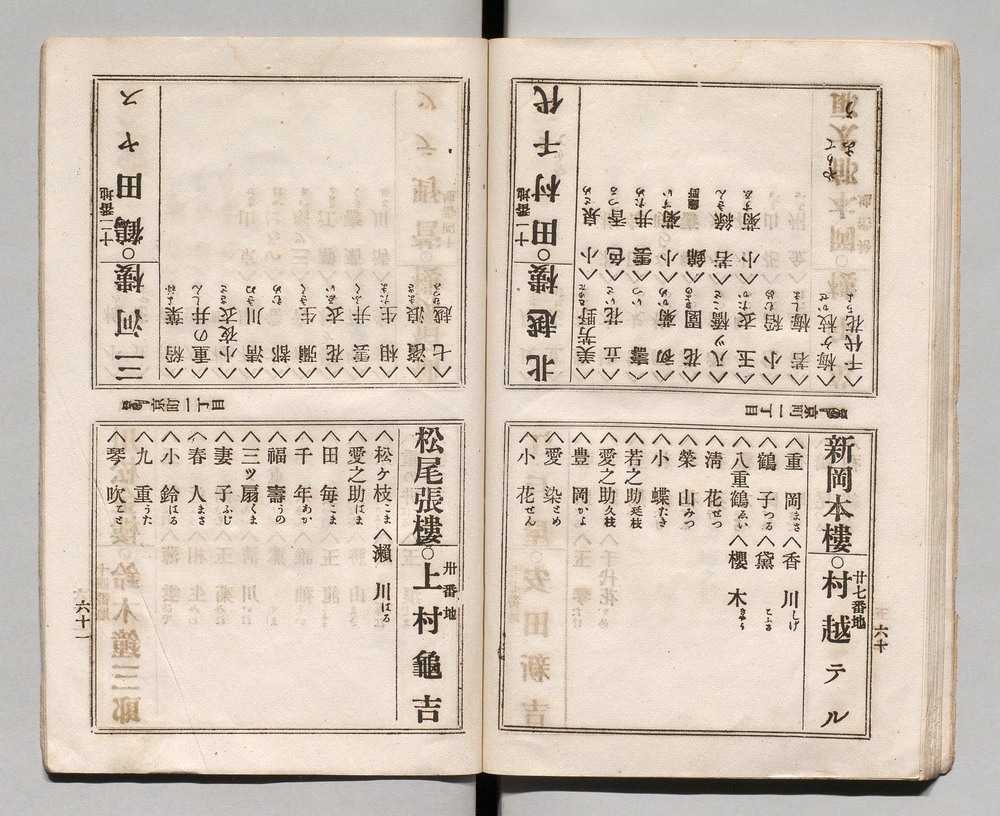 京町二丁目
六十
新岡本樓○村越テル
廿七番地
重岡まさ 香川しげ
鶴子つる 黛
八重鶴 櫻木
清花せつ
榮山みつ
小蝶たき
若之助
愛之助
豊岡かよ
愛染とめ
小花せん
北越樓○田村千代
十一番地
美芳野 小泉
立花 色香
壽 雲井
初菊 小菊
花園 錦
八ツ橋 若綠
玉衣 小菊
小稻
若梅
梅ヶ枝
千代花
やりて
京町二丁目
六十一
松尾張樓○上村龜吉
卅番地
松ヶ枝こま 瀬川はる
愛之助はま
田毎こま
千年あか
福壽うの
三ツ扇くま
妻子ふじ
春人まさ
小鈴はる
九重うた
琴吹こと
三河樓○鶴田ヤス
十二番地
稻葉
重の井
小夜衣
清川
都
彌生
花衣
雲井
相生
濱浪
七越